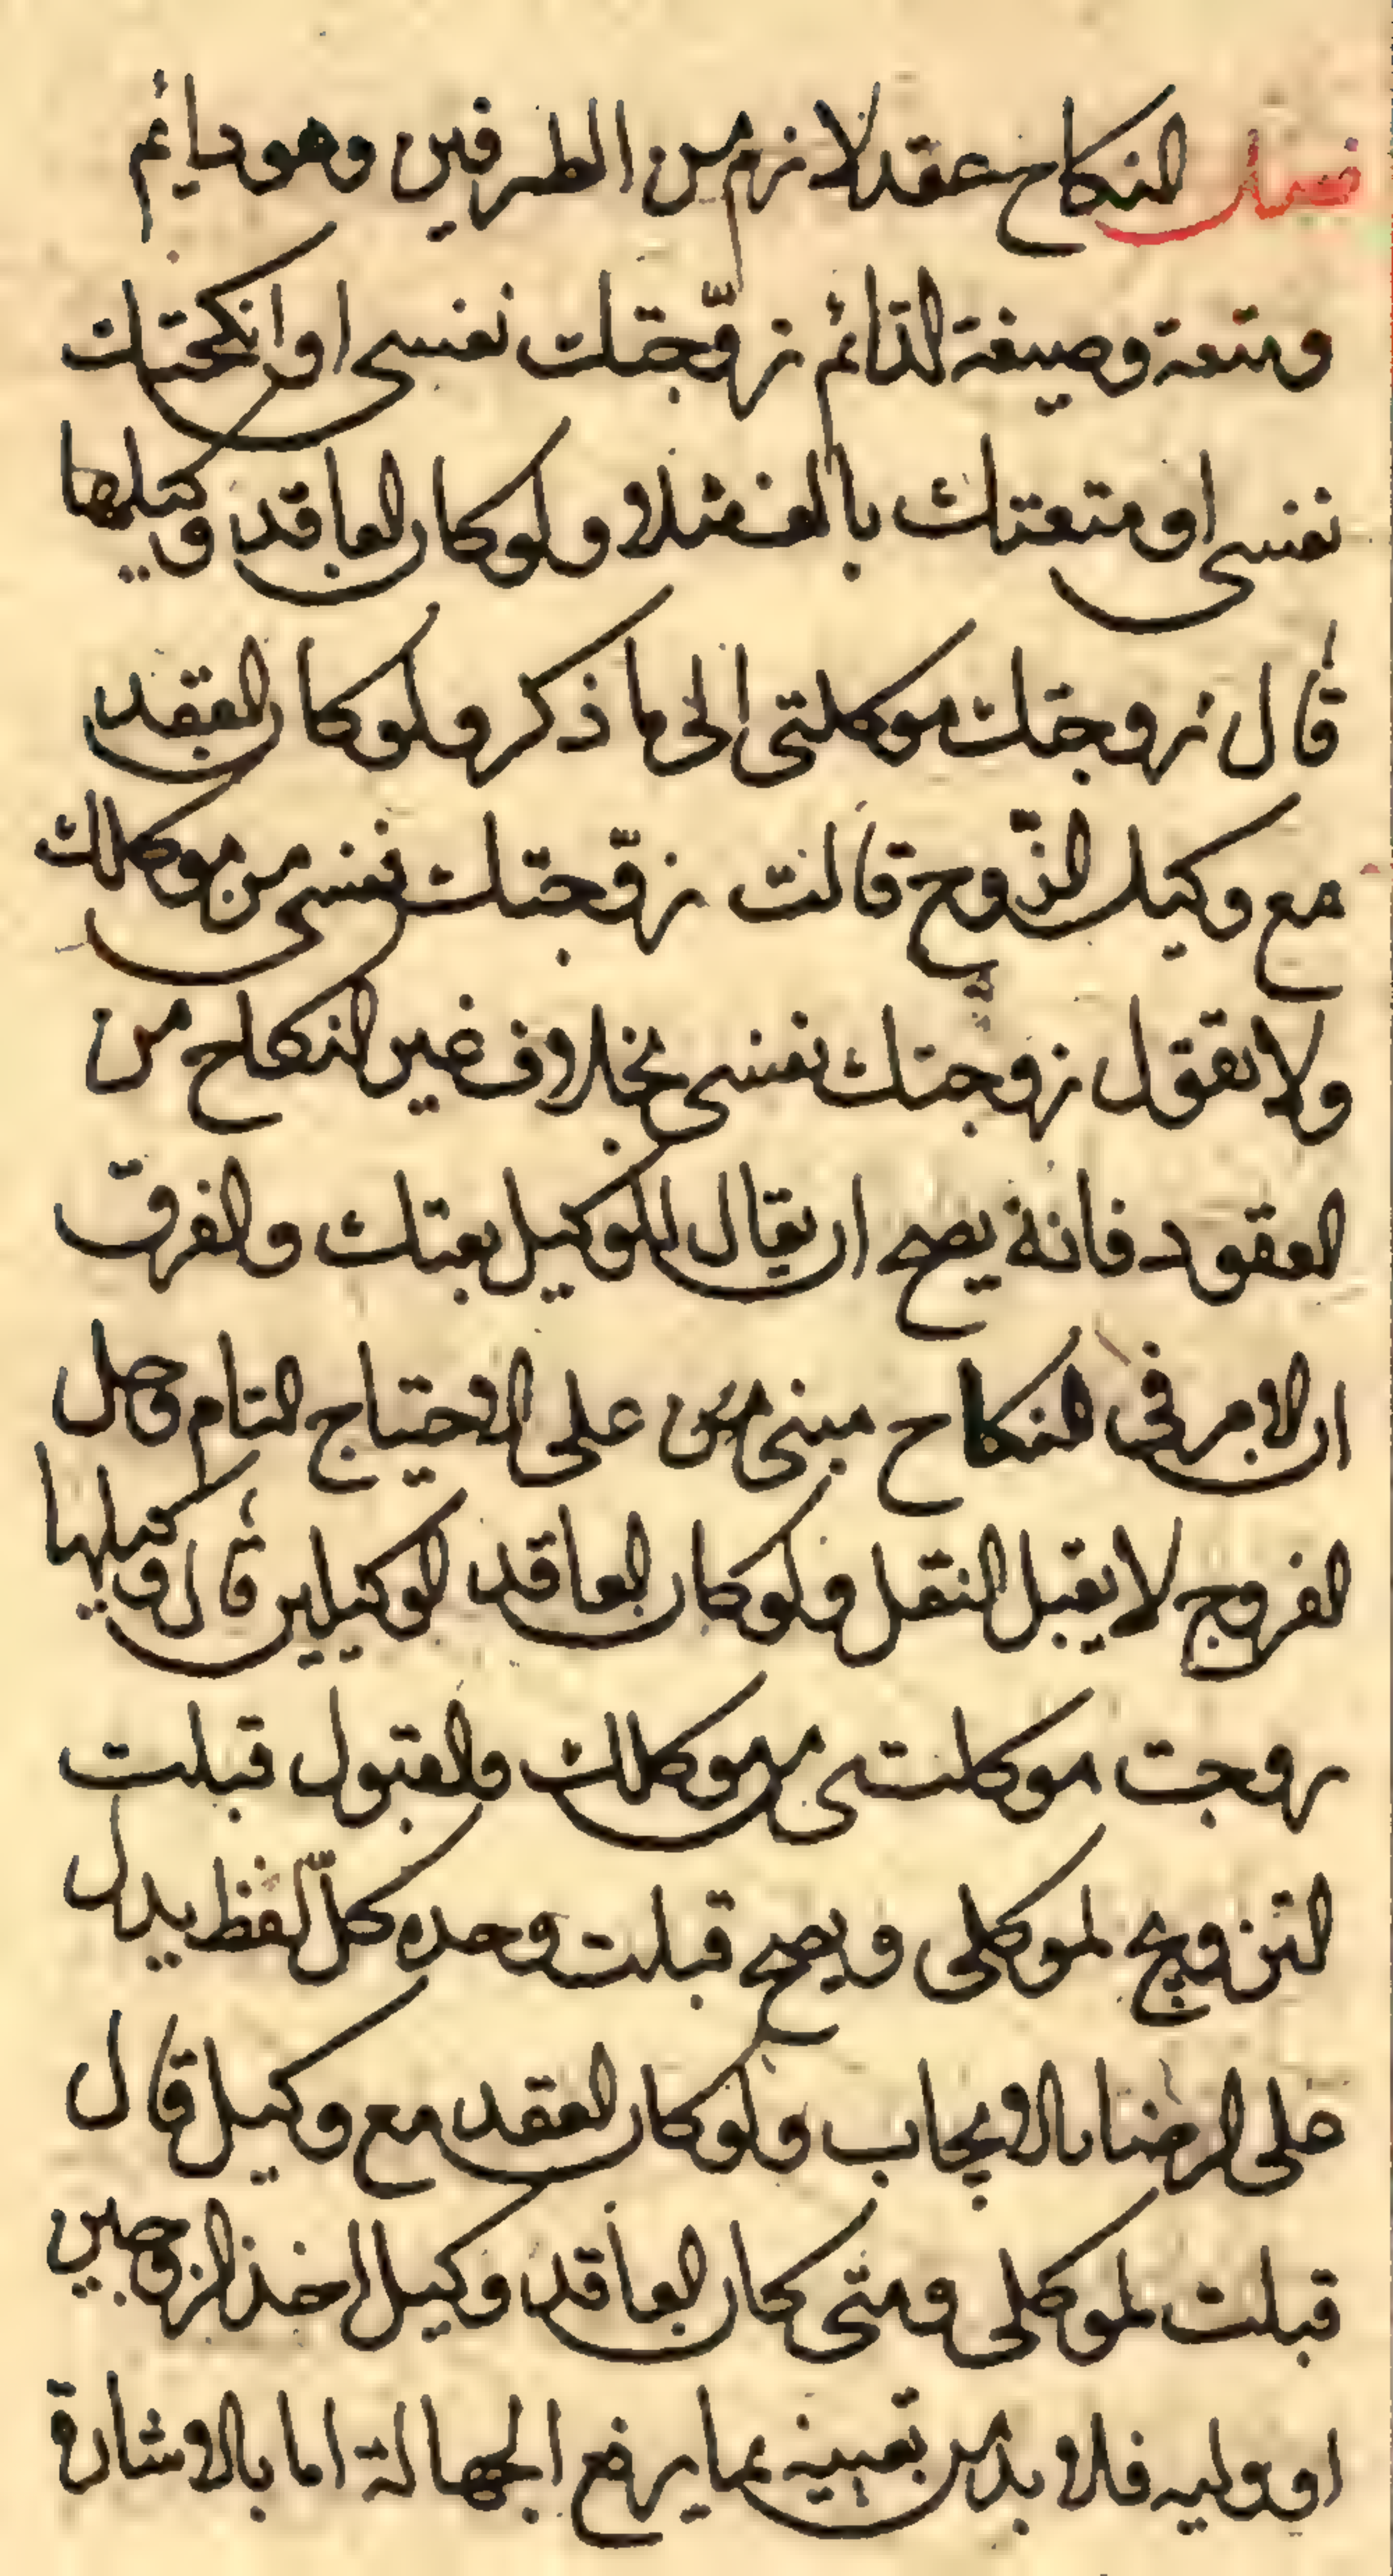 فصل النكاح عقد لازم من الطرفين وهو دائم
ومتعة وصيغة الدّائم زوّجتك نفسى او انكحتك
نفسى او متعتك بالف مثلا ولو كان العاقد وكيلها
قال زوجتك موكلتى الى ما ذكر ولو كان العقد
مع وكيل الزّوج قالت زوّجتك نفسى من موكلك
ولا تقول زوجتك نفسى بخلاف غير النكاح من
العقود فانه يصح ان يقال للوكيل بعتك والفرق
ان الامر فى النكاح مبنى على الاحتياج التام وحل
الفروج لا يقبل النقل ولو كان العاقد الوكيلين قال وكيلها
زوجت موكلتى من موكلك والقبول قبلت
التزويج لموكلى ويصح قبلت وحده كلّ لفظ يدل
على الرضا بالايجاب ولو كان العقد مع وكيل قال
قبلت لموكلى ومتى كان العاقد وكيل احد الزوجين
او وليه فلا بد من تعيينه بما يرفع الجهالة اما بالاشارة